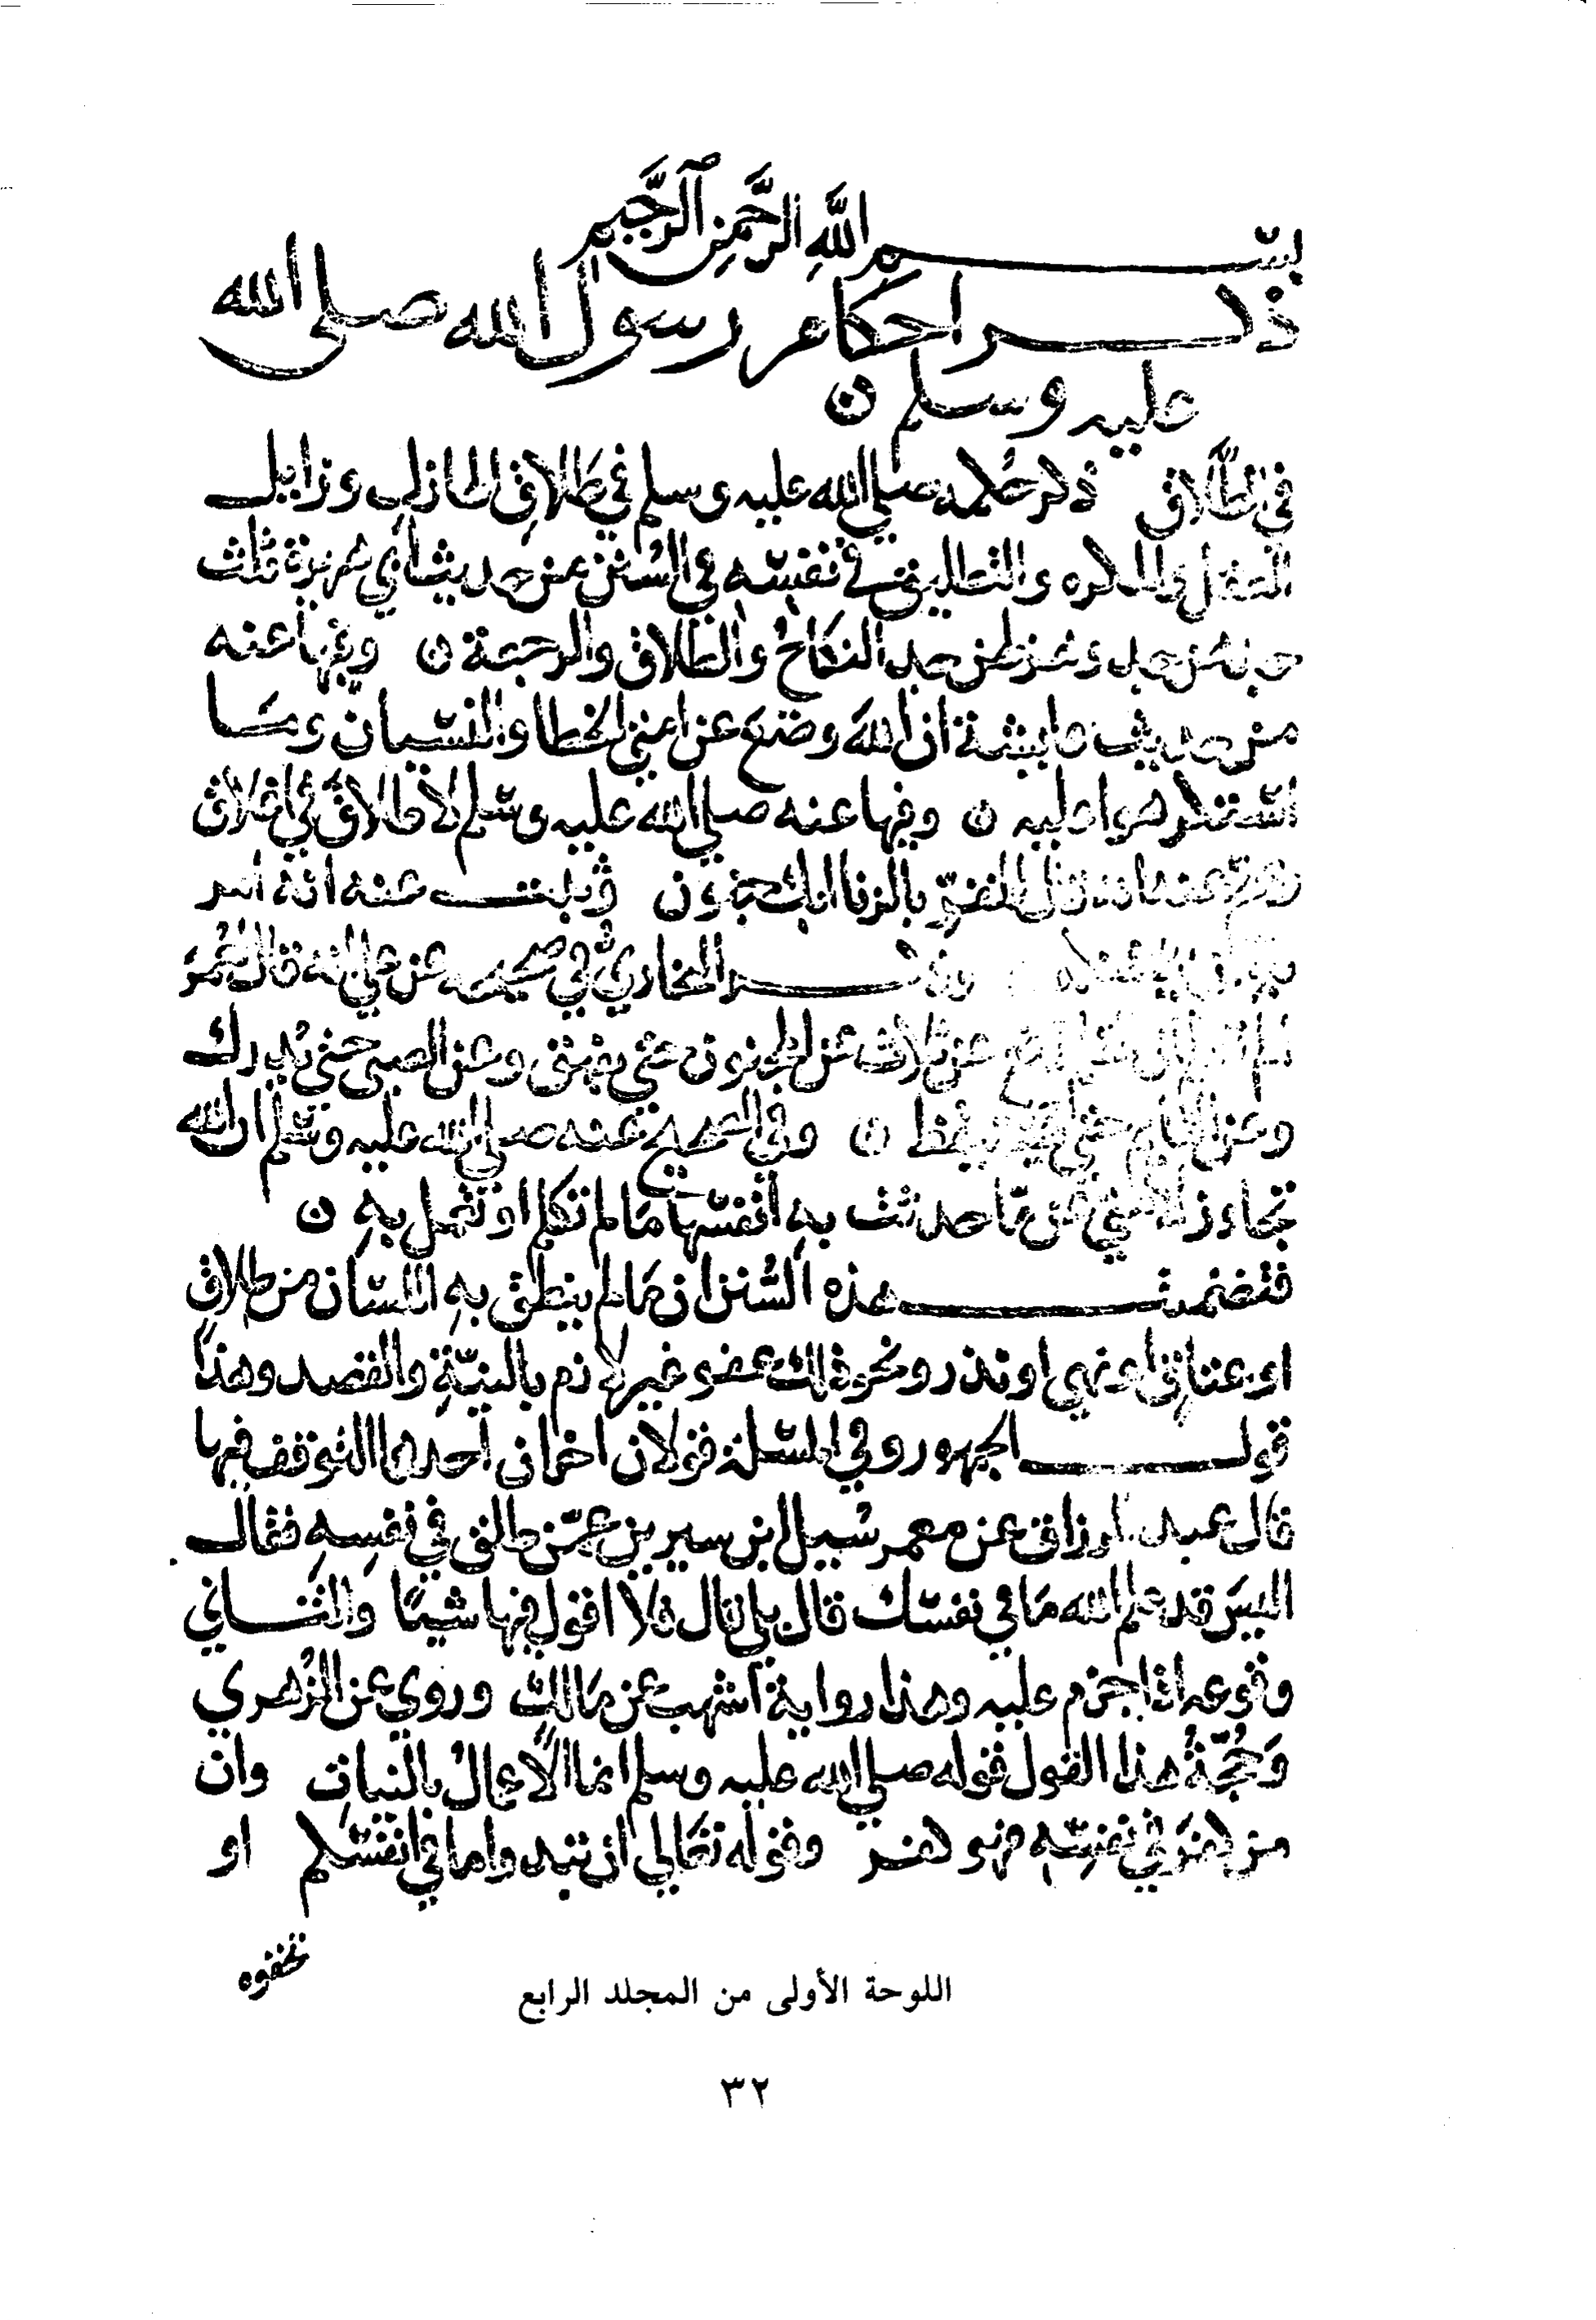 بسم الله الرحمن الرحيم
ذكر احكام رسول الله صلى الله
عليه وسلم ن
في الطلاق ذكر حكمه صلي الله عليه وسلم في طلاق الهازل وزايل
العقل والمكره والتطليق في نفسه في السنن من حديث أبي هريرة ثلاث
جدهن جد وهزلهن جد النكاح والطلاق والرجعة ن وفيها عنه
من حديث عايشة ان الله وضع عن امتي الخطا والنسيان وما
استكرهوا عليه ن وفيها عنه صلي الله عليه وسلم لا طلاق في اغلاق
وصح عنه انه قال للمقر بالزنا ابك جنون وثبت عنه انه امر
به ان يستنكه وذكر البخاري في صحيحه عن علي انه قال لعمر
عن ثلاث عن المجنون حتى يفيق وعن الصبي حتى يدرك
وعن النايم حتى يستيقظ ن وفي الصحيح عنه صلي الله عليه وسلم ان الله
تجاوز لامتي عن ما حدثت به انفسها ما لم تكلم او تعمل به ن
فتضمنت هذه السنن ان ما لم ينطق به اللسان من طلاق
او عتاق او نهي او نذر ونحو ذلك عفو غير لازم بالنية والقصد وهذا
قول الجمهور وفي المسلة قولان اخران أحدها التوقف فيها
قال عبد الرزاق عن معمر سيل ابن سيرين عمن طلق في نفسه فقال
اليس قد علم الله ما في نفسك قال بلى قال فلا اقول فيها شيا والثاني
وقوعه اذا جزم عليه وهذا رواية اشهب عن مالك وروي عن الزهري
وحجة هذا القول قوله صلي الله عليه وسلم انما الأعمال بالنيات وان
من كفر في نفسه فهو كفر وقوله تعالي ان تبدوا ما في انفسكم او
تخفوه
اللوحة الأولى من المجلد الرابع
٣٢